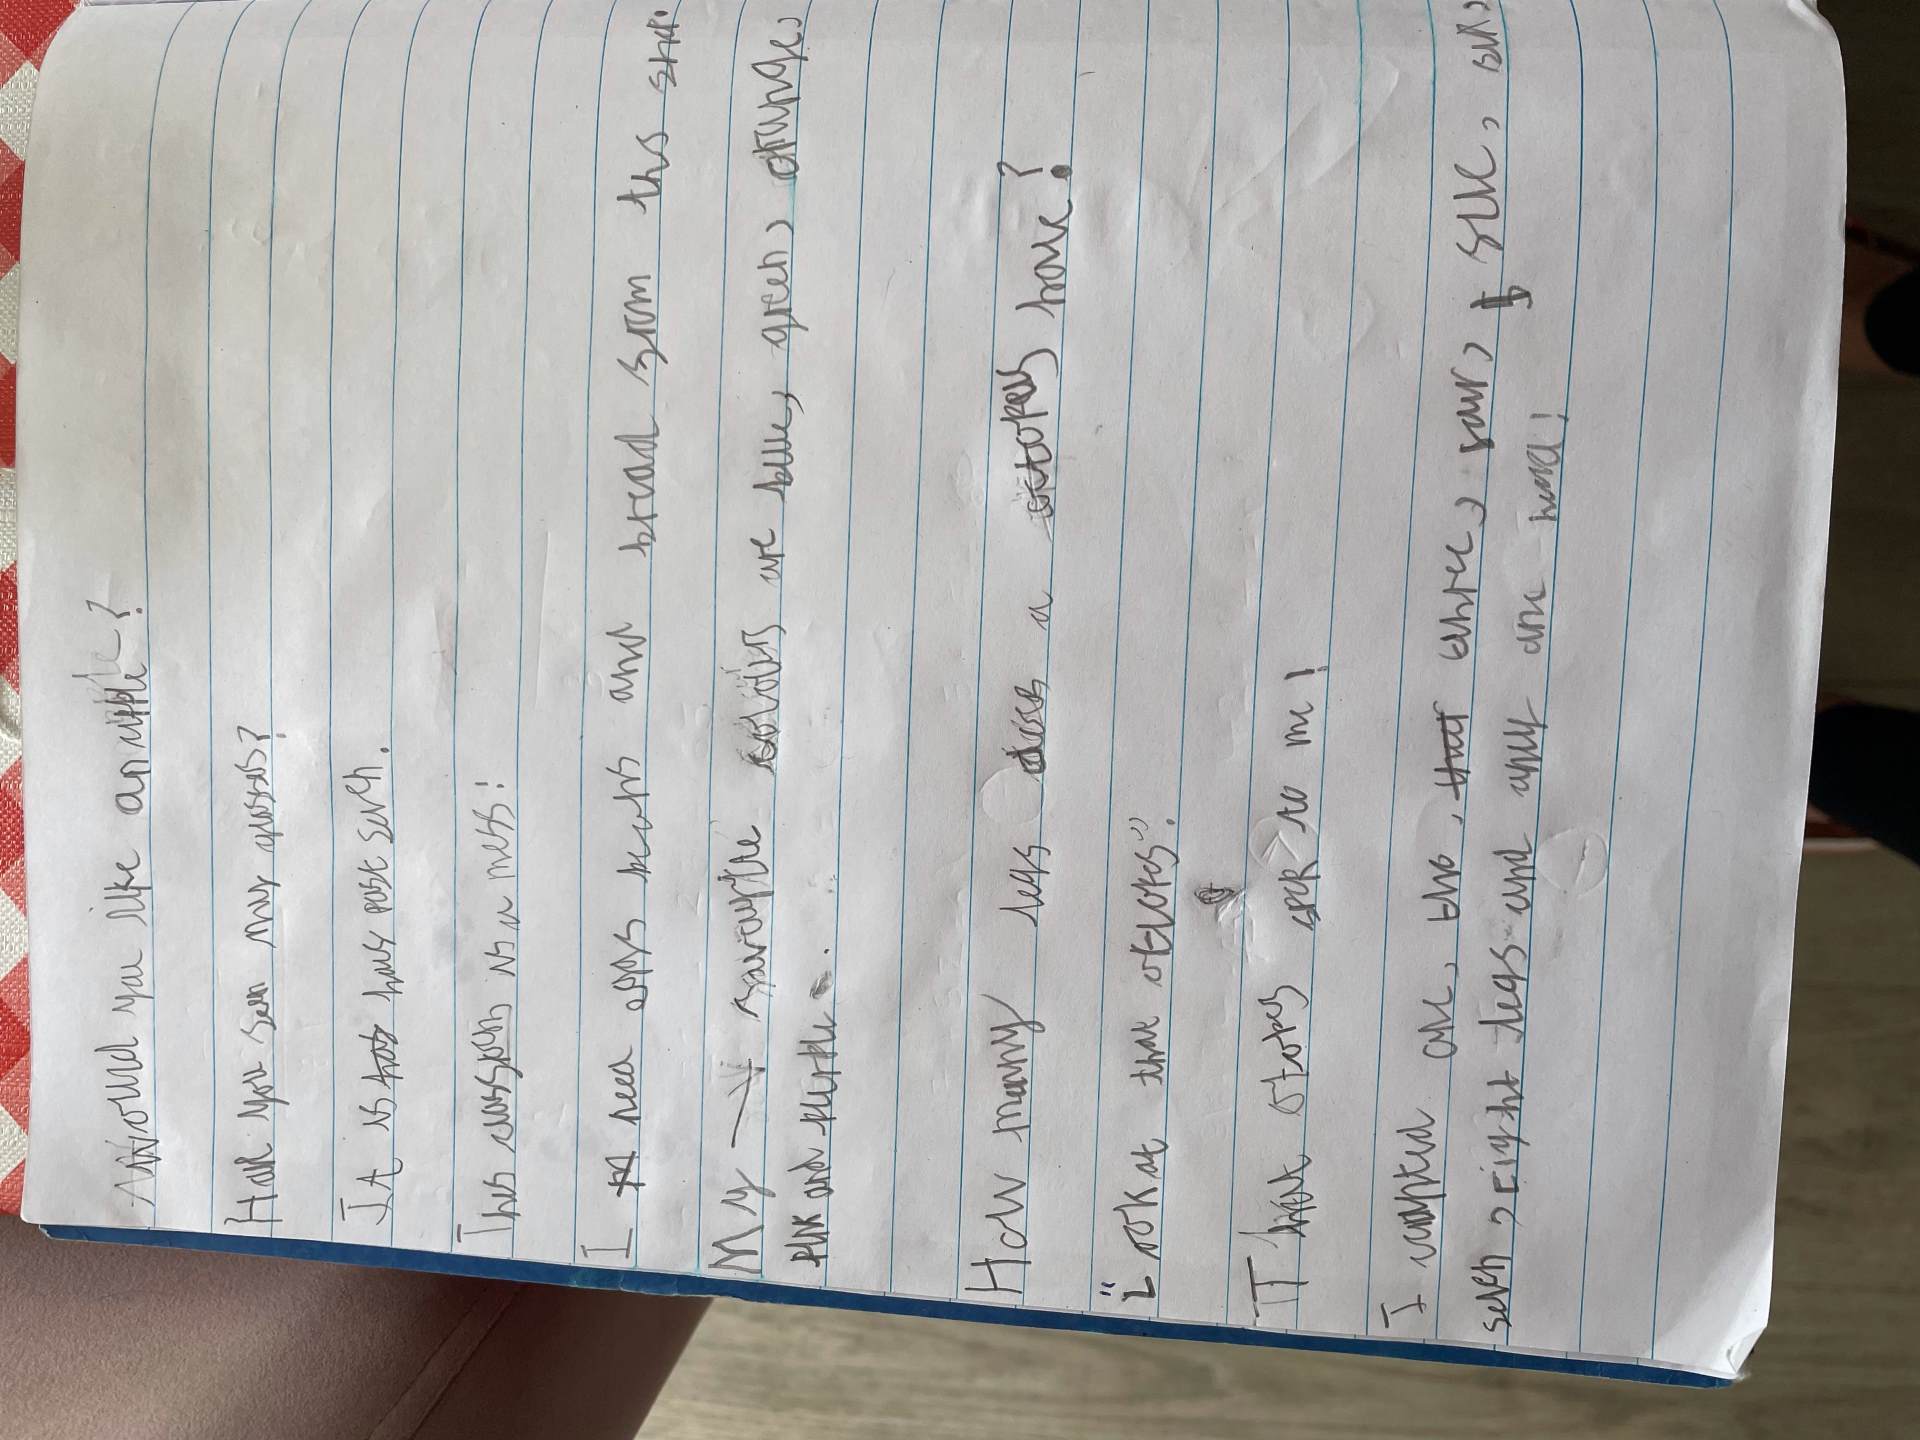 Would you like an apple?
Hav you seen my glasses?
It is haf past seven.
This classroom is a mess!
I need eggs and bread from the
My favourite colours are blue, green, orange,
pink and purple.
How many legs does a octopus have?
"Look at that octopes".
That otopes to me!
I counted one, two, three, four, five,
seven, eight legs and only one head!